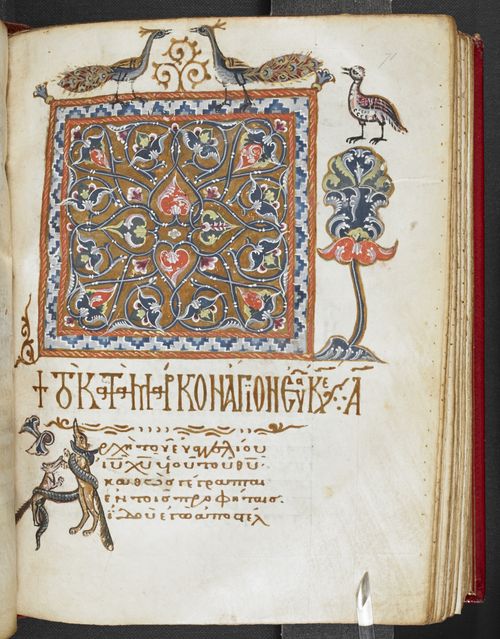 + ΤΟ ΚΑΤΑ ΜΑΡΚΟΝ ΑΓΙΟΝ ΕΥΑ ΚΕ Α
Ἀρχὴ τοῦ εὐαγγελίου
ἰυ χυ υἱοῦ τοῦ θυ·
καθὼς γέγραπται
ἐν τοῖς προφήταις·
ἰδοὺ ἐγὼ ἀποστέλ